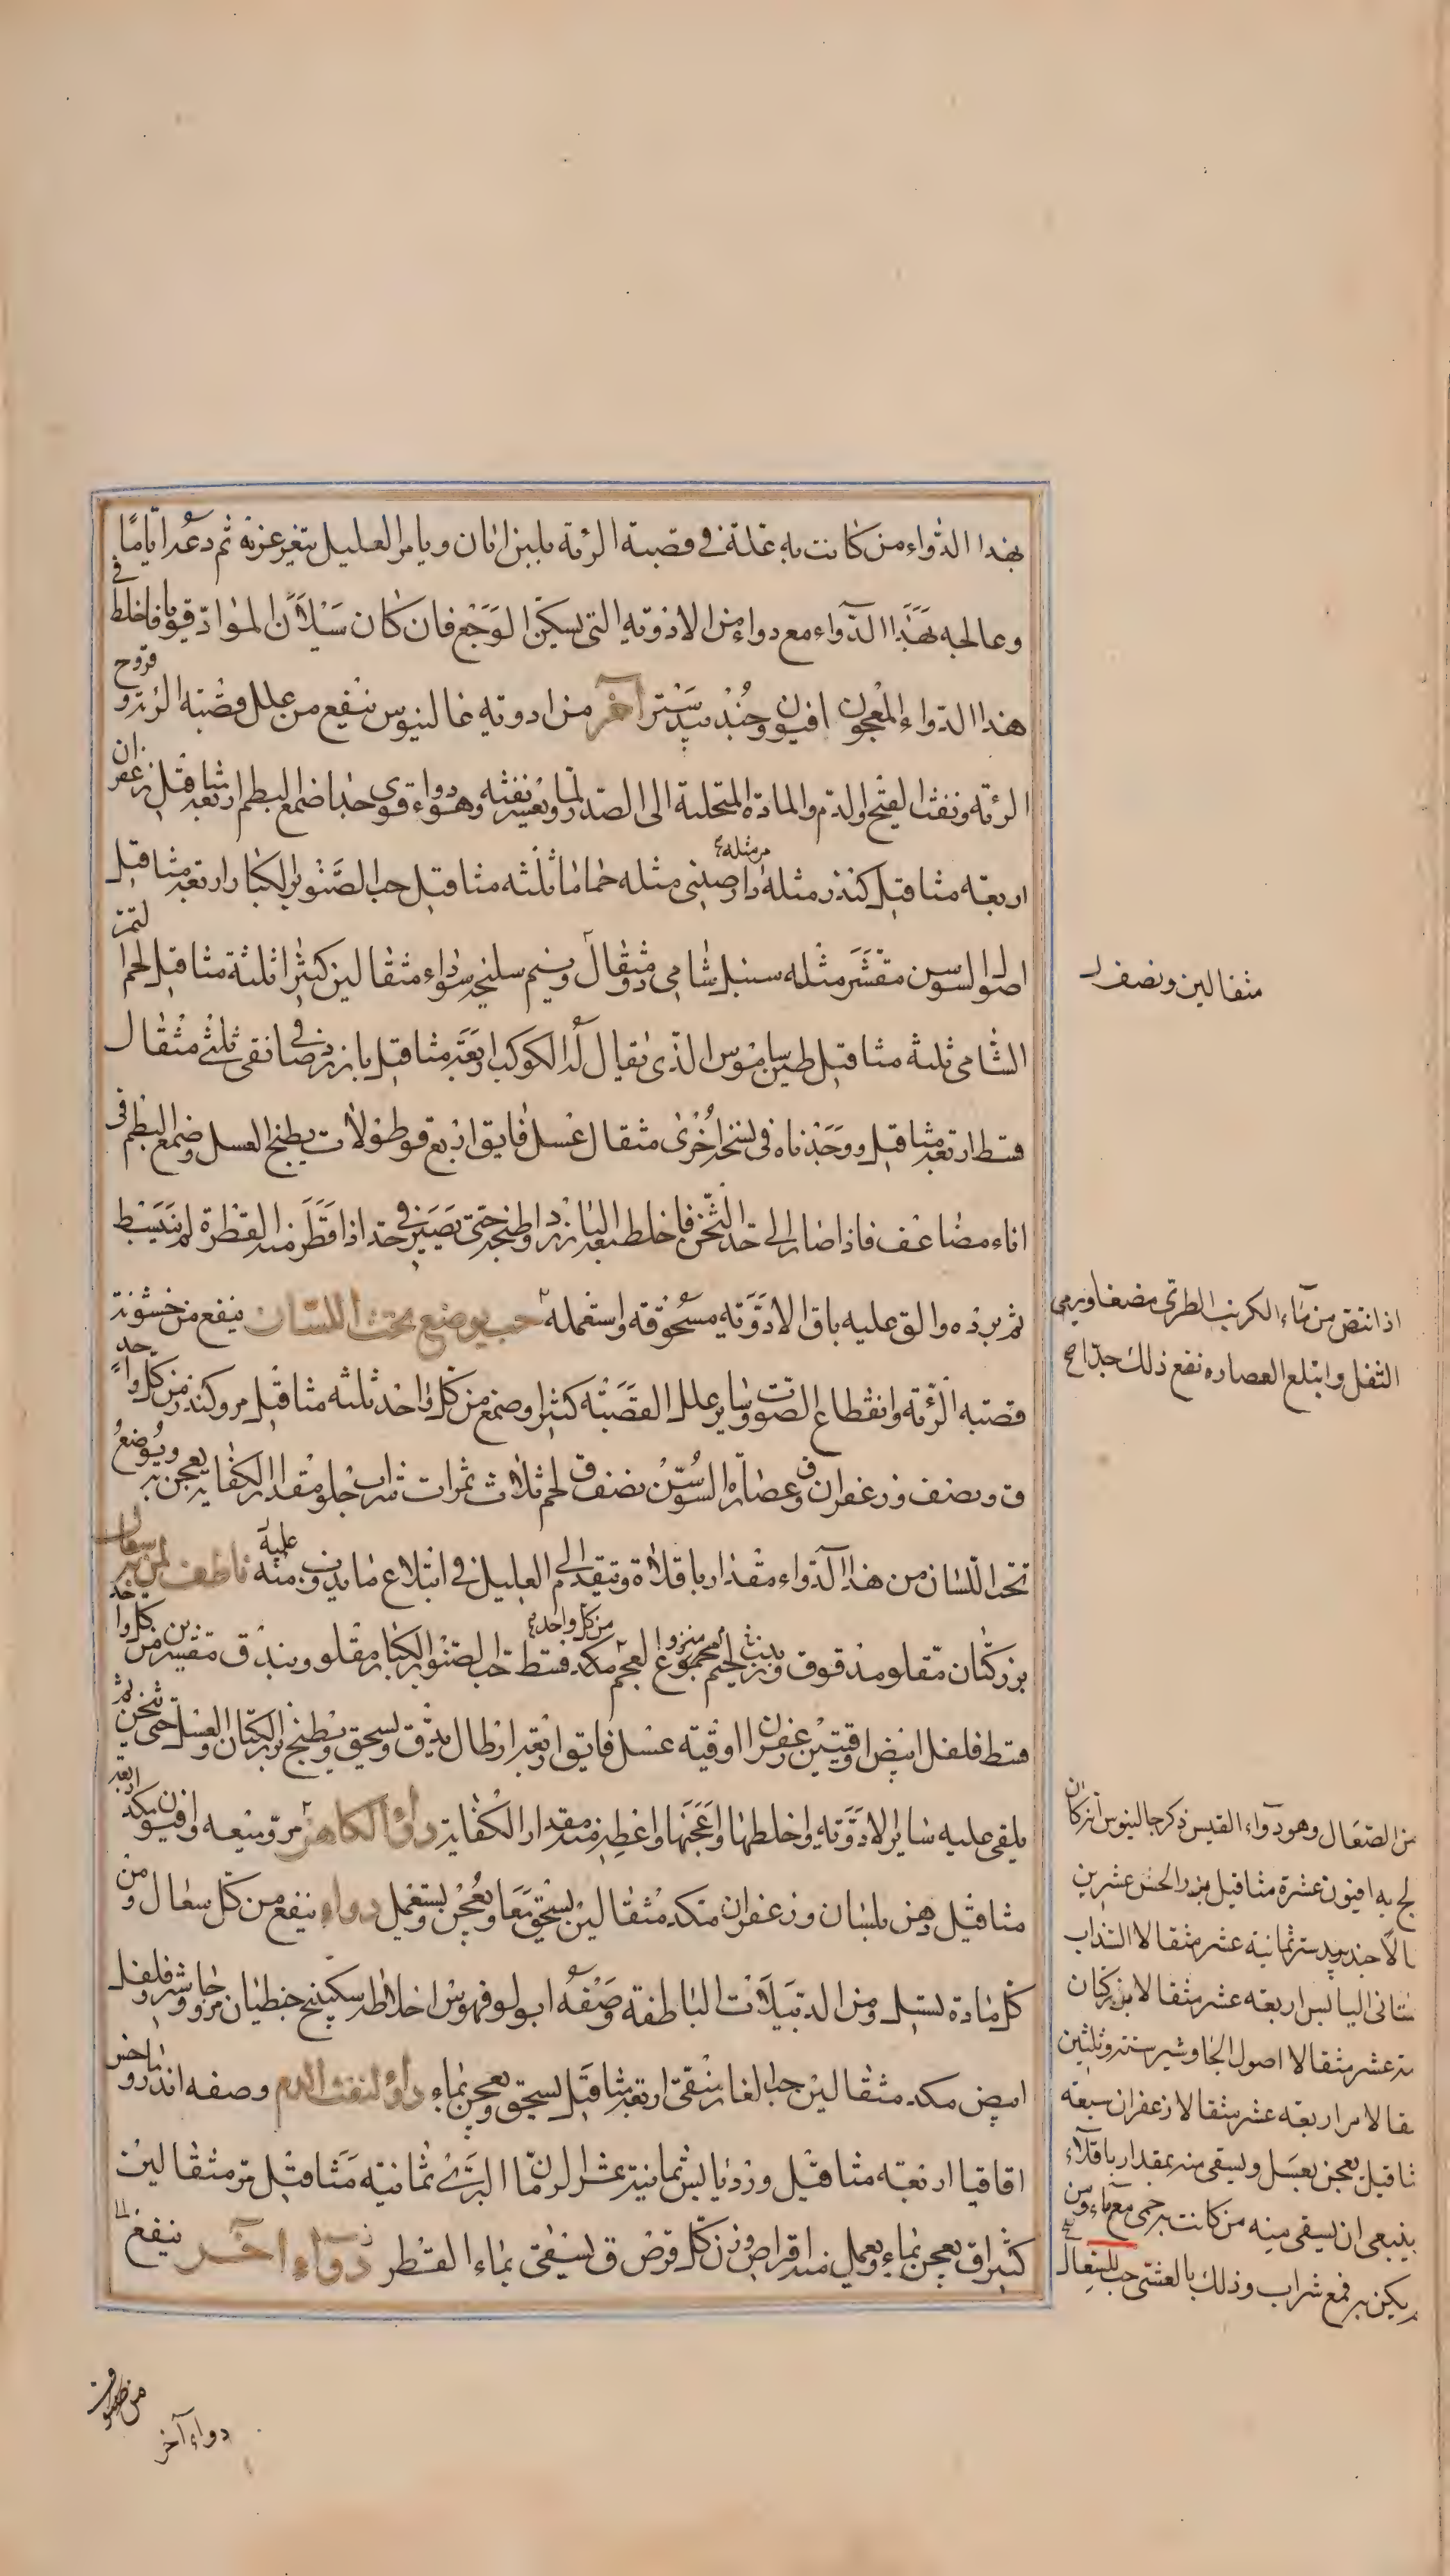 بهذا الدواء من كانت به علة في قصبة الرئة بلبن اتان ويامر العليل يتغرغر به ثم دعه اياما
وعالجه بهذا الدواء مع دواء من الادوية التي يسكن الوجع فان كان سيلان المواد قويا فاخلط في
هذا الدواء المعجون افيون وجندبيدستر آخر من ادوية غالينوس ينفع من علل قصبة الرئة و قروح
الرئة ونفث القيح والدم والمادة المتحلبة الى الصدر لما ويعسر نفثه وهو دواء قوي جدا صمغ البطم اربعة مثاقيل زعفران
اربعة مثاقيل كندر مثله دارصيني مثله حماما ثلثه مثاقيل حب الصنوبر الكبار اربعة مثاقيل
اصول السوسن مقشر مثله سنبل شامي مثقال ونيم سليخه سوداء مثقالين كثيرا ثلثة مثاقيل لحم التمر
الشامي ثلثة مثاقيل طين ساموس الذي يقال له الكوكب اربعة مثاقيل بارزد صافي نقي ثلثي مثقال
قسط اربعة مثاقيل ووجدناه في نسخة اخرى مثقال عسل فايق اربع قوطولات يطبخ العسل وصمغ البطم في
اناء مضاعف فاذا صار الى حد الثخن فاخلط بعد البارزد واطبخه حتى يصير في حد اذا قطر منه القطرة لم ينبسط
ثم برده والق عليه باقي الادوية مسحوقة واستعمله حب يوضع تحت اللسان ينفع من خشونة
قصبه الرئة وانقطاع الصوت وساير علل القصبة كثيرا وصمغ من كل واحد ثلثه مثاقيل مر وكندر من كل واحد
ق ونصف وزعفران ق وعصارة السوسن نصف ق لحم ثلاث ثمرات شراب حلو مقدار الكفاية يعجن به ويوضع
تحت اللسان من هذا الدواء مقدار باقلاة ويتقدم الى العليل في ابتلاع ما يذوب منه عليه ناطف لمن به سعال
بزر كتان مقلو مدقوق وزبيب لحيم منزوع العجم مكد قسط حب الصنوبر الكبار مقلو وبندق مقشر من كل واحد
قسط فلفل ابيض اوقيتين زعفران اوقيه عسل فايق اربعة ارطال يدق ويسحق ويطبخ بزر الكتان والعسل حتى يثخن ثم
يلقى عليه ساير الادوية واخلطها واعجنها واعط منه مقدار الكفاية دواء الكاهن مر وميعه وافيون مكد اربعة
مثاقيل دهن بلسان وزعفران مكد مثقالين يسحق معا ويعجن ويستعمل دواء ينفع من كل سعال ومن
كل مادة يسيل ومن الدبيلات الباطنة وصفه ابولوفهوس اخلاطه سكبينج جنطيانا مر وجاوشير وفلفل
ابيض مكد مثقالين حب الغار منقى اربعة مثاقيل يسحق ويعجن بماء دواء لنفث الدم وصفه اندروماخس
اقاقيا اربعة مثاقيل ورد يابس ثمانية عشر جلنار الرمان البري ثمانيه مثاقيل مر مثقالين
كثيرا ق يعجن بماء ويعمل منه اقراص وزن كل قرص ق يسقى بماء القطر دواء آخر ينفع
مثقالين ونصف
اذا نقض من ماء الكرنب الطري مضغا ويرمي
الثفل وابتلع العصاره نفع ذلك جدا صح
من الصعال وهو دواء القيس ذكر جالينوس انه كان
لج به افيون عشرة مثاقيل بزر الخس عشرين
الا جندبيدستر ثمانية عشر مثقالا السذاب
ستاني اليابس اربعه عشر مثقالا بزر كتان
ته عشر مثقالا اصول الجاوشير ستة وثلثين
قالا مر اربعه عشر مثقالا زعفران سبعة
ثاقيل يعجن بعسل ويسقى منه بمقدار باقلاء
ينبغي ان يسقى منه من كانت به حمى مع ماء ومن
يكن به فمع شراب وذلك بالعشي حب للسعال
دواء آخر